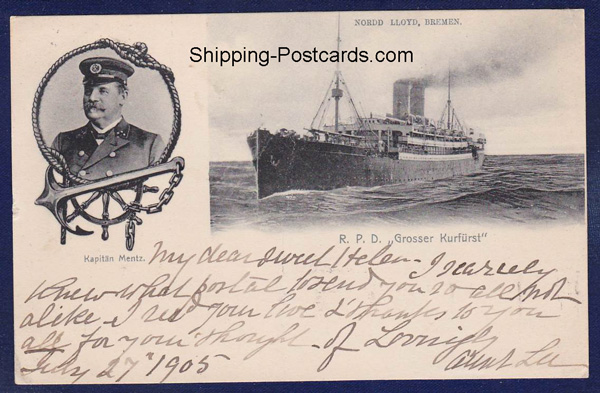 NORDD LLOYD, BREMEN.
Shipping-Postcards.com
R. P. D. „Grosser Kurfürst"
Kapitän Mentz.
My dear sweet Helen - I scarcely
knew what postal to send you so all not
alike - I rec'd your love & thanks to you
all for your thought of Lovingly
July 27" 1905 Aunt Lu